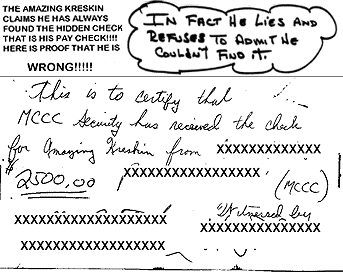 THE AMAZING KRESKIN
CLAIMS HE HAS ALWAYS
FOUND THE HIDDEN CHECK
THAT IS HIS PAY CHECK!!!!
HERE IS PROOF THAT HE IS
WRONG!!!!!
IN FACT HE LIES AND
REFUSES TO ADMIT HE
COULDN'T FIND IT.
This is to certify that
MCCC Security has received the check
for Amazing Kreskin from XXXXXXXXXXXXX
$2500.00 XXXXXXXXXXXXXXXXX
(MCCC)
Witnessed by
XXXXXXXXXXXXXXXXXXX
XXXXXXXXXXXXXXX
XXXXXXXXXXXXXXXXXX